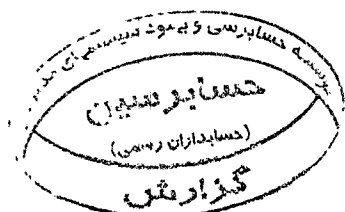 موسسه حسابرسی و بهبود سیستمهای مدیریت
حسابرسین
(حسابداران رسمی)
گزارش